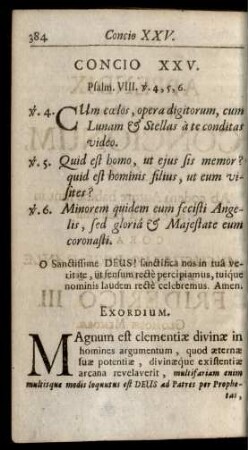 384 Concio XXV.
CONCIO XXV.
Psalm. VIII. ℣. 4, 5, 6.
℣. 4. CUm cœlos, opera digitorum, cum
Lunam & Stellas à te conditas
video.
℣. 5. Quid est homo, ut ejus sis memor?
quid est hominis filius, ut eum vi-
sites?
℣. 6. Minorem quidem eum fecisti Ange-
lis, sed gloriâ & Majestate eum
coronasti.
O Sanctissime DEUS! sanctifica nos in tuâ ve-
ritate, ut sensum rectè percipiamus, tuique
nominis laudem rectè celebremus. Amen.
EXORDIUM.
MAgnum est clementiæ divinæ in
homines argumentum, quod æternæ
suæ potentiæ, divinæque existentiæ
arcana revelaverit, multifariam enim
multisque modis loquutus est DEUS ad Patres per Prophe-
tas,